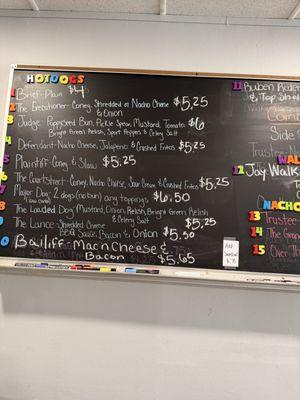 HOTDOGS
1 Brief-Plain $4
2 The Executioner-Coney, Shredded or Nacho Cheese $5.25
& Onion
3 Judge-Poppyseed Bun, Pickle Spear, Mustard, Tomato $6
Bright Green Relish, Sport Peppers & Celery Salt
4 Defendant-Nacho Cheese, Jalapeno & Crushed Fritos $5.25
5 Plaintiff-Coney & Slaw $5.25
6 The Courtstreet-Coney, Nacho Cheese, Sour Cream & Crushed Fritos $5.25
7 Major Dog-2 dogs (no bun) any toppings $6.50
8 The Loaded Dog (Mustard, Onion, Relish, Bright Green Relish
& Celery Salt $5.25
9 The Lance-Shredded Cheese
BBQ Sauce, Bacon & Onion $5.50
0 Bailiff-Mac n Cheese &
Bacon $5.65
11 Ruben
12 Jay Walk
NACHO
13 Truste
14 The Gra
15 Over
Side
Trustee
WAL
Add